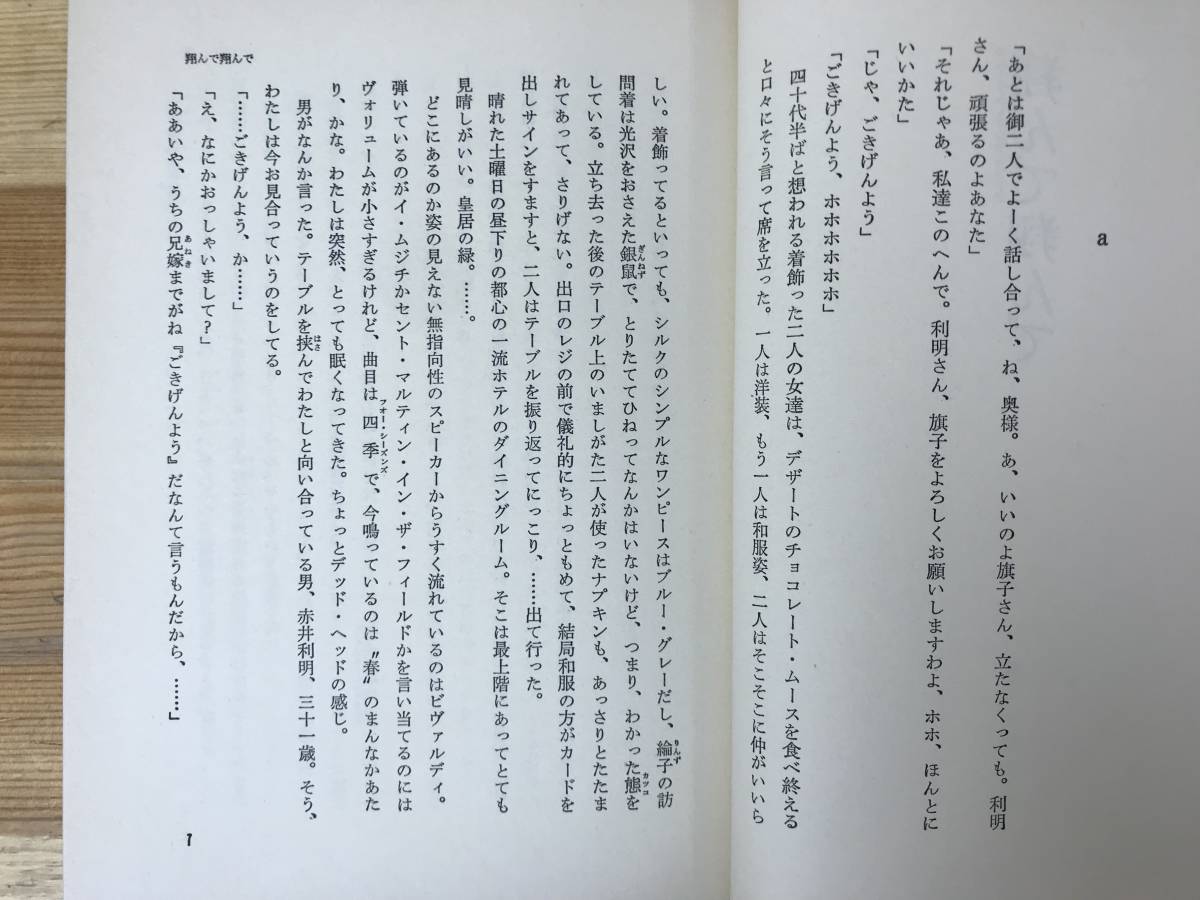 a
「あとは御二人でよーく話し合って、ね、奥様。あ、いいのよ旗子さん、立たなくっても。利明
さん、頑張るのよあなた」
「それじゃあ、私達このへんで。利明さん、旗子をよろしくお願いしますわよ、ホホ、ほんとに
いいかた」
「じゃ、ごきげんよう」
「ごきげんよう、ホホホホホホ」
四十代半ばと想われる着飾った二人の女達は、デザートのチョコレート・ムースを食べ終える
と口々にそう言って席を立った。一人は洋装、もう一人は和服姿、二人はそこそこに仲がいいら
しい。着飾ってるといっても、シルクのシンプルなワンピースはブルー・グレーだし、綸子の訪
りんず
問着は光沢をおさえた銀鼠で、とりたててひねってなんかはいないけど、つまり、わかった態を
ぎんねず
カッコ
している。立ち去った後のテーブル上のいましがた二人が使ったナプキンも、あっさりとたたま
れてあって、さりげない。出口のレジの前で儀礼的にちょっともめて、結局和服の方がカードを
出しサインをすますと、二人はテーブルを振り返ってにっこり、……出て行った。
晴れた土曜日の昼下りの都心の一流ホテルのダイニングルーム。そこは最上階にあってとても
見晴しがいい。皇居の緑。……。
どこにあるのか姿の見えない無指向性のスピーカーからうすく流れているのはビヴァルディ。
弾いているのがイ・ムジチかセント・マルティン・イン・ザ・フィールドかを言い当てるのには
ヴォリュームが小さすぎるけれど、曲目は四季で、今鳴っているのは〝春〟のまんなかあた
フォー・シーズンズ
り、かな。わたしは突然、とっても眠くなってきた。ちょっとデッド・ヘッドの感じ。
男がなんか言った。テーブルを挟んでわたしと向い合っている男、赤井利明、三十一歳。そう、
はさ
わたしは今お見合っていうのをしてる。
「……ごきげんよう、か……」
「え、なにかおっしゃいまして?」
「ああいや、うちの兄嫁までがね『ごきげんよう』だなんて言うもんだから、……」
あねき
翔んで翔んで
7